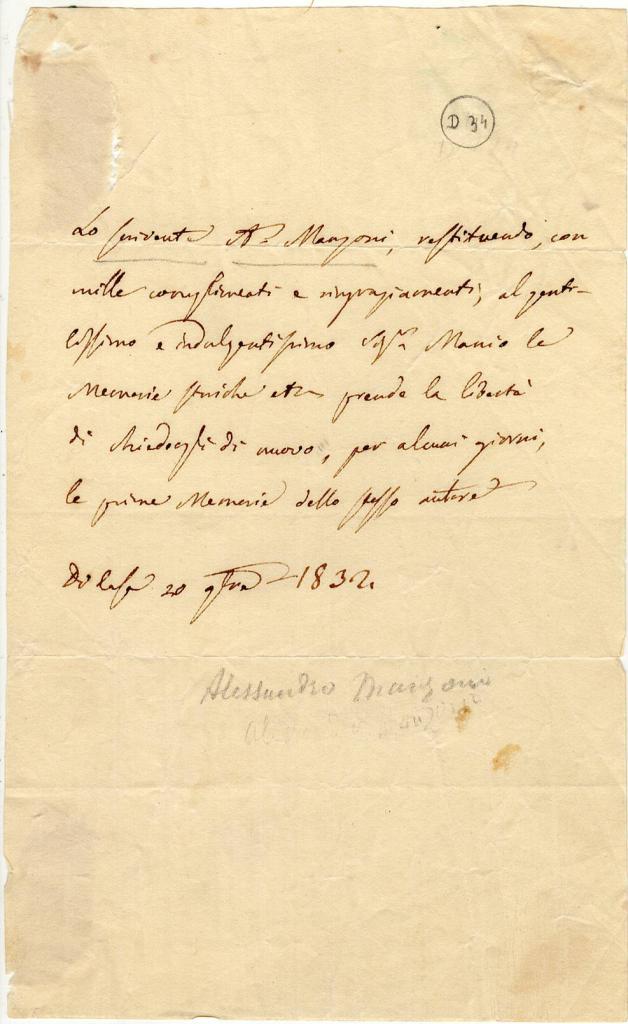 D 34
Lo scrivente A. Manzoni, restituendo, con
mille complimenti e ringraziamenti, al genti-
lissimo e indulgentissimo Sigr Manio le
Memorie storiche etc prende la libertà
di chiedergli di nuovo, per alcuni giorni,
le prime Memorie dello stesso autore
Di Casa 20 9bre 1832.
Alessandro Manzoni